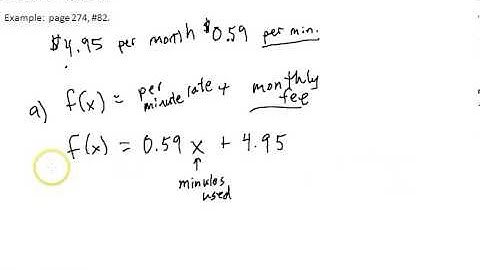 Example: page 274, #82.
$4.95 per month $0.59 per min.
a) f(x) = per minute rate + monthly fee
f(x) = 0.59 x + 4.95
↑
minutes
used